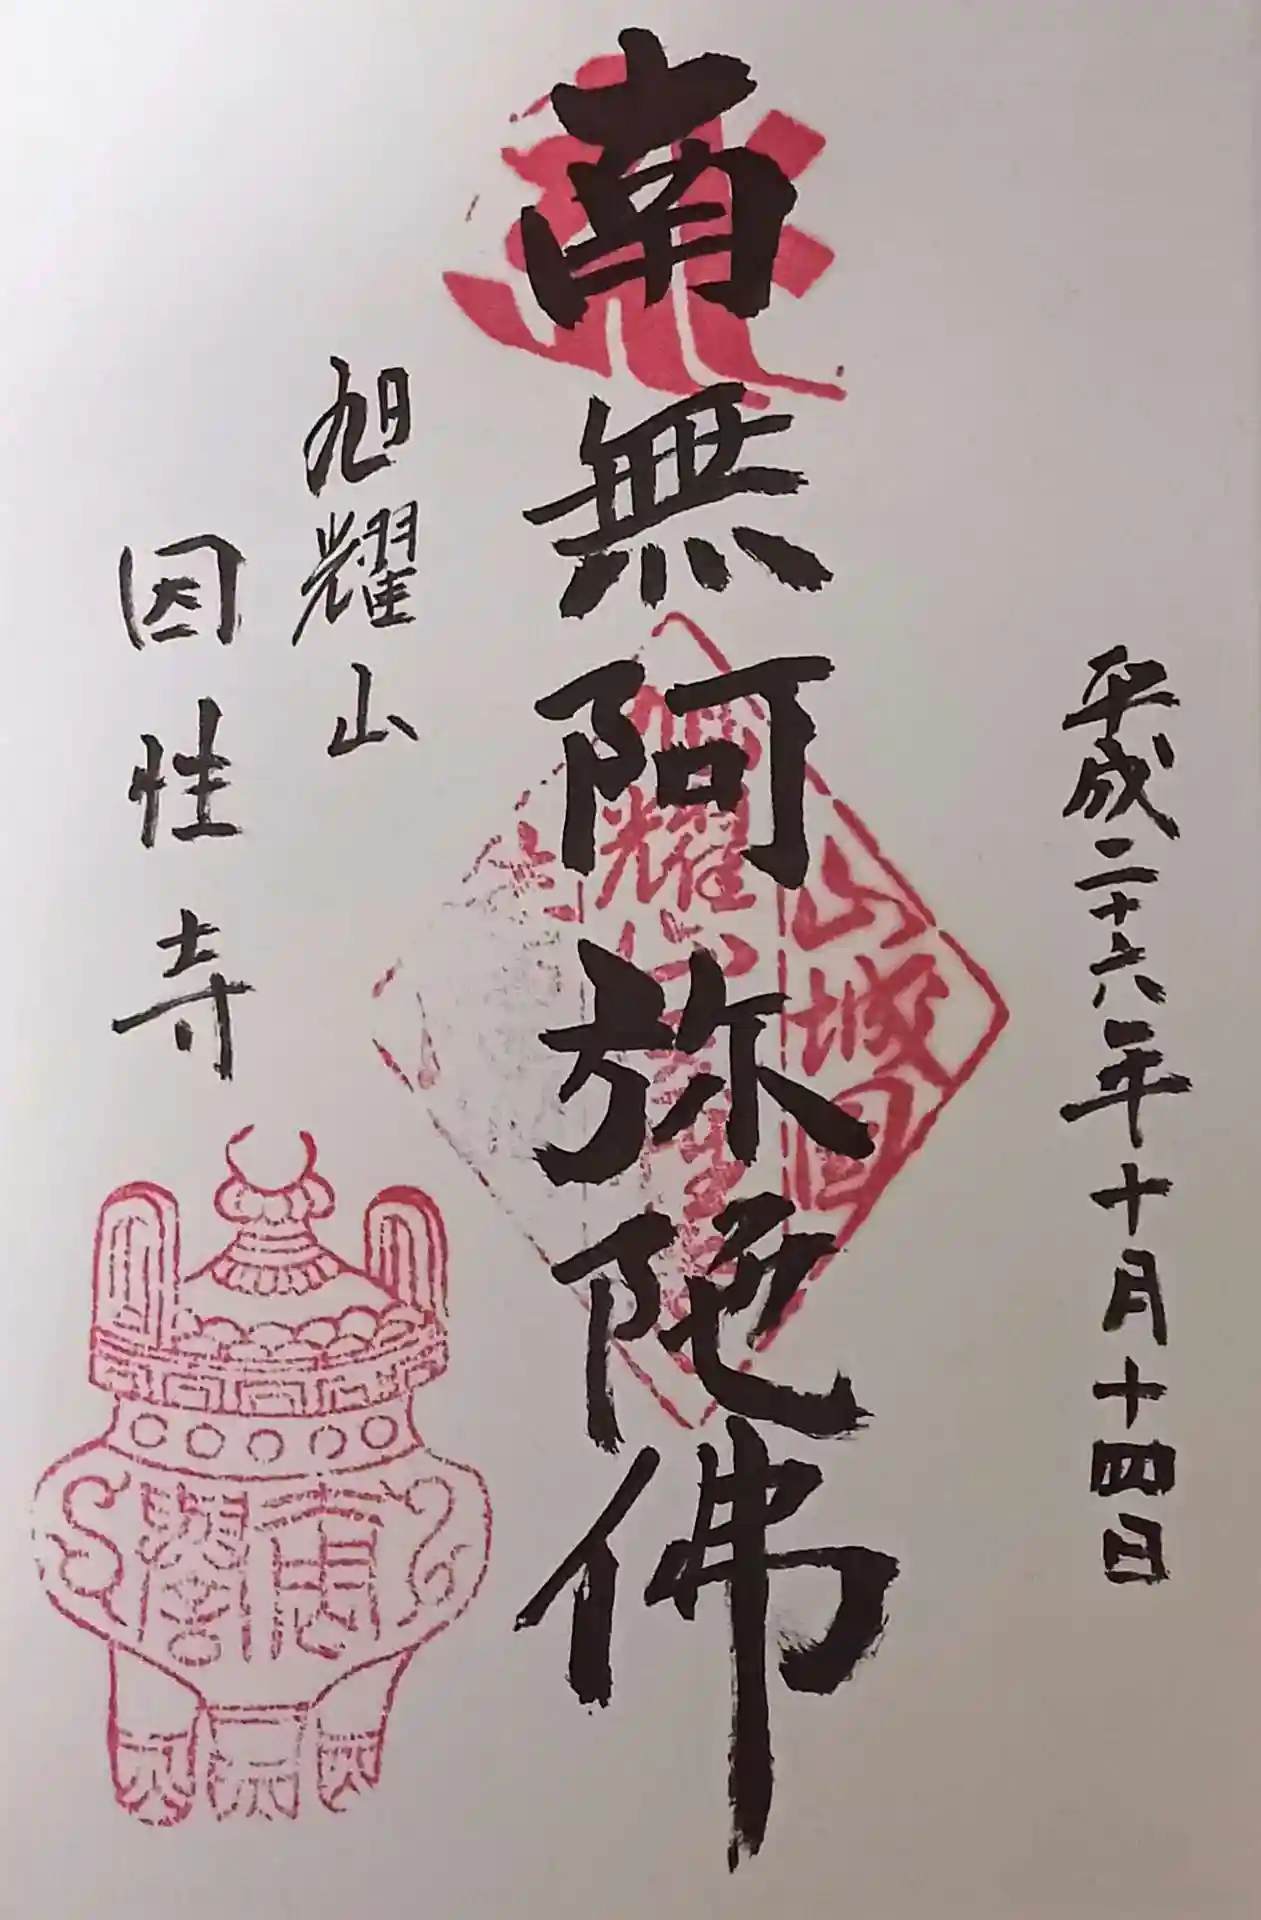 平成二十六年十月十四日
南無阿弥陀佛
山城国
旭耀山
因性寺